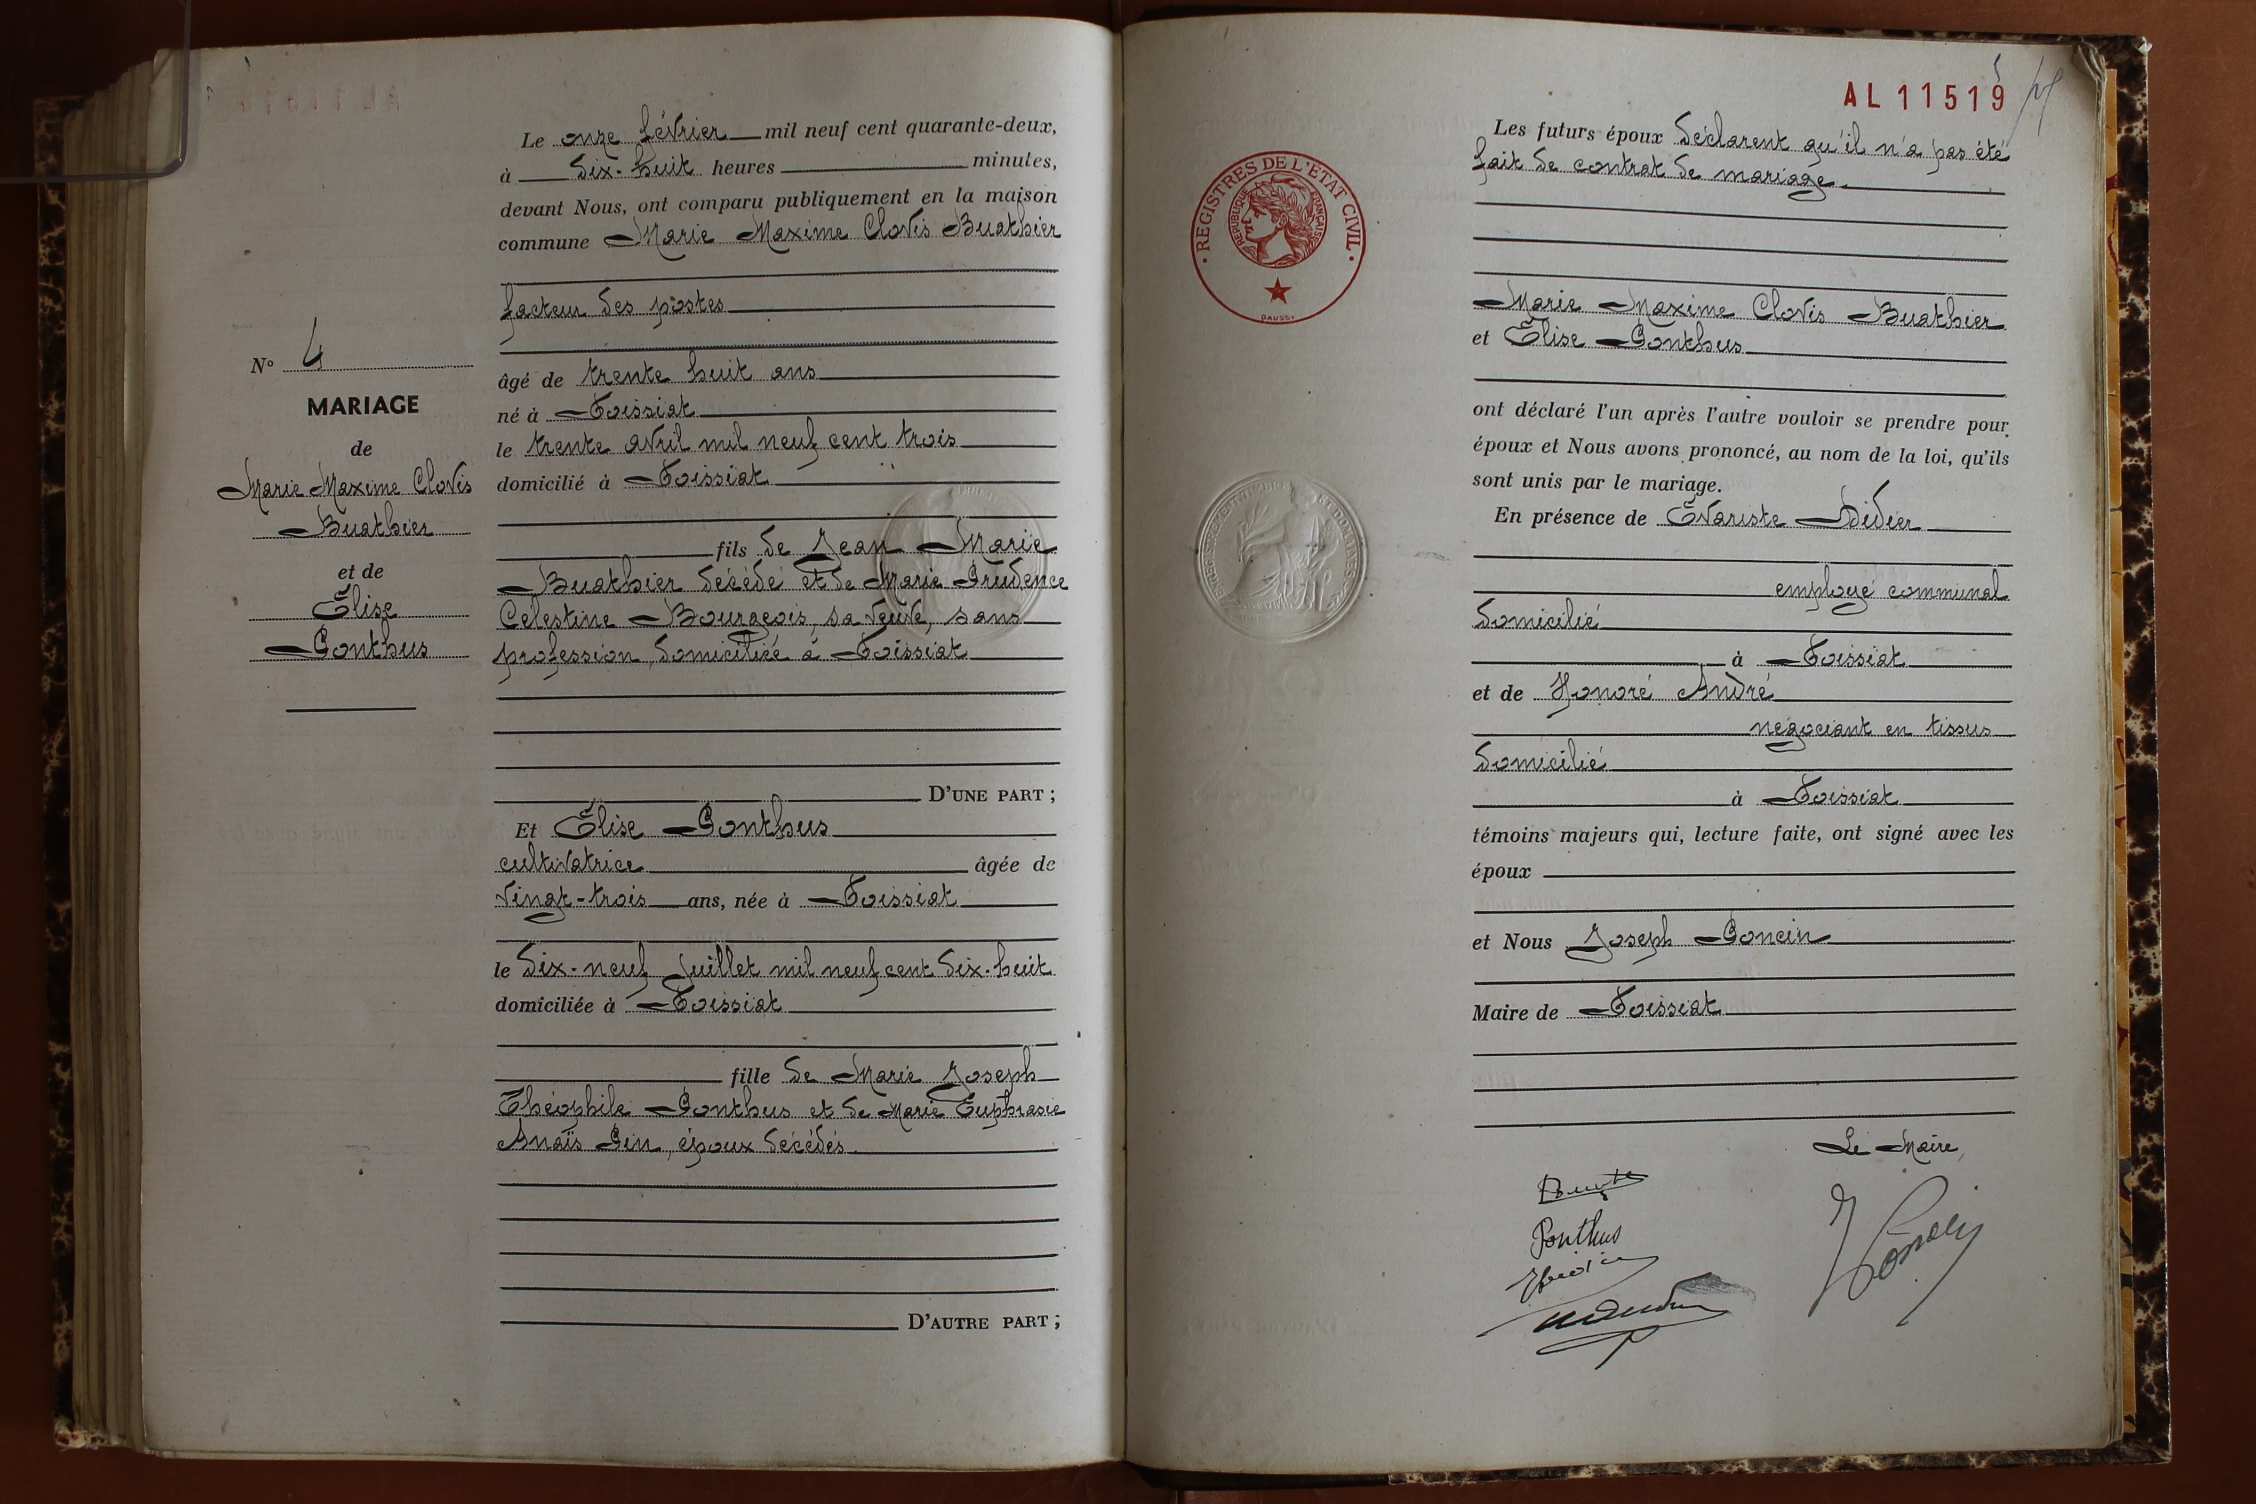 Le onze février mil neuf cent quarante-deux,
à dix-huit heures minutes,
devant Nous, ont comparu publiquement en la maison
commune Marie Maxime Clovis Buathier
facteur des postes
âgé de trente huit ans
né à Foissiat
le trente avril mil neuf cent trois
domicilié à Foissiat
fils de Jean Marie
Buathier décédé et de Marie Prudence
Célestine Bourgeois, sa veuve, sans
profession, domiciliée à Foissiat
D'UNE PART ;
Et Élise Ponthus
cultivatrice âgée de
vingt-trois ans, née à Foissiat
le dix-neuf juillet mil neuf cent dix-huit
domiciliée à Foissiat
fille de Marie Joseph
Théophile Ponthus et de Marie Euphrasie
Anaïs Pin, époux décédés.
D'AUTRE PART ;
N° 4
MARIAGE
de
Marie Maxime Clovis
Buathier
et de
Élise
Ponthus
AL 11519
REGISTRES DE L'ETAT CIVIL
REPUBLIQUE FRANÇAISE
DAUSSY
Les futurs époux déclarent qu'il n'a pas été
fait de contrat de mariage.
Marie Maxime Clovis Buathier
et Élise Ponthus
ont déclaré l'un après l'autre vouloir se prendre pour
époux et Nous avons prononcé, au nom de la loi, qu'ils
sont unis par le mariage.
En présence de Évariste Didier
employé communal
domicilié
à Foissiat
et de Honoré André
négociant en tissus
domicilié
à Foissiat
témoins majeurs qui, lecture faite, ont signé avec les
époux
et Nous Joseph Poncin
Maire de Foissiat
Le Maire,
Ponthus